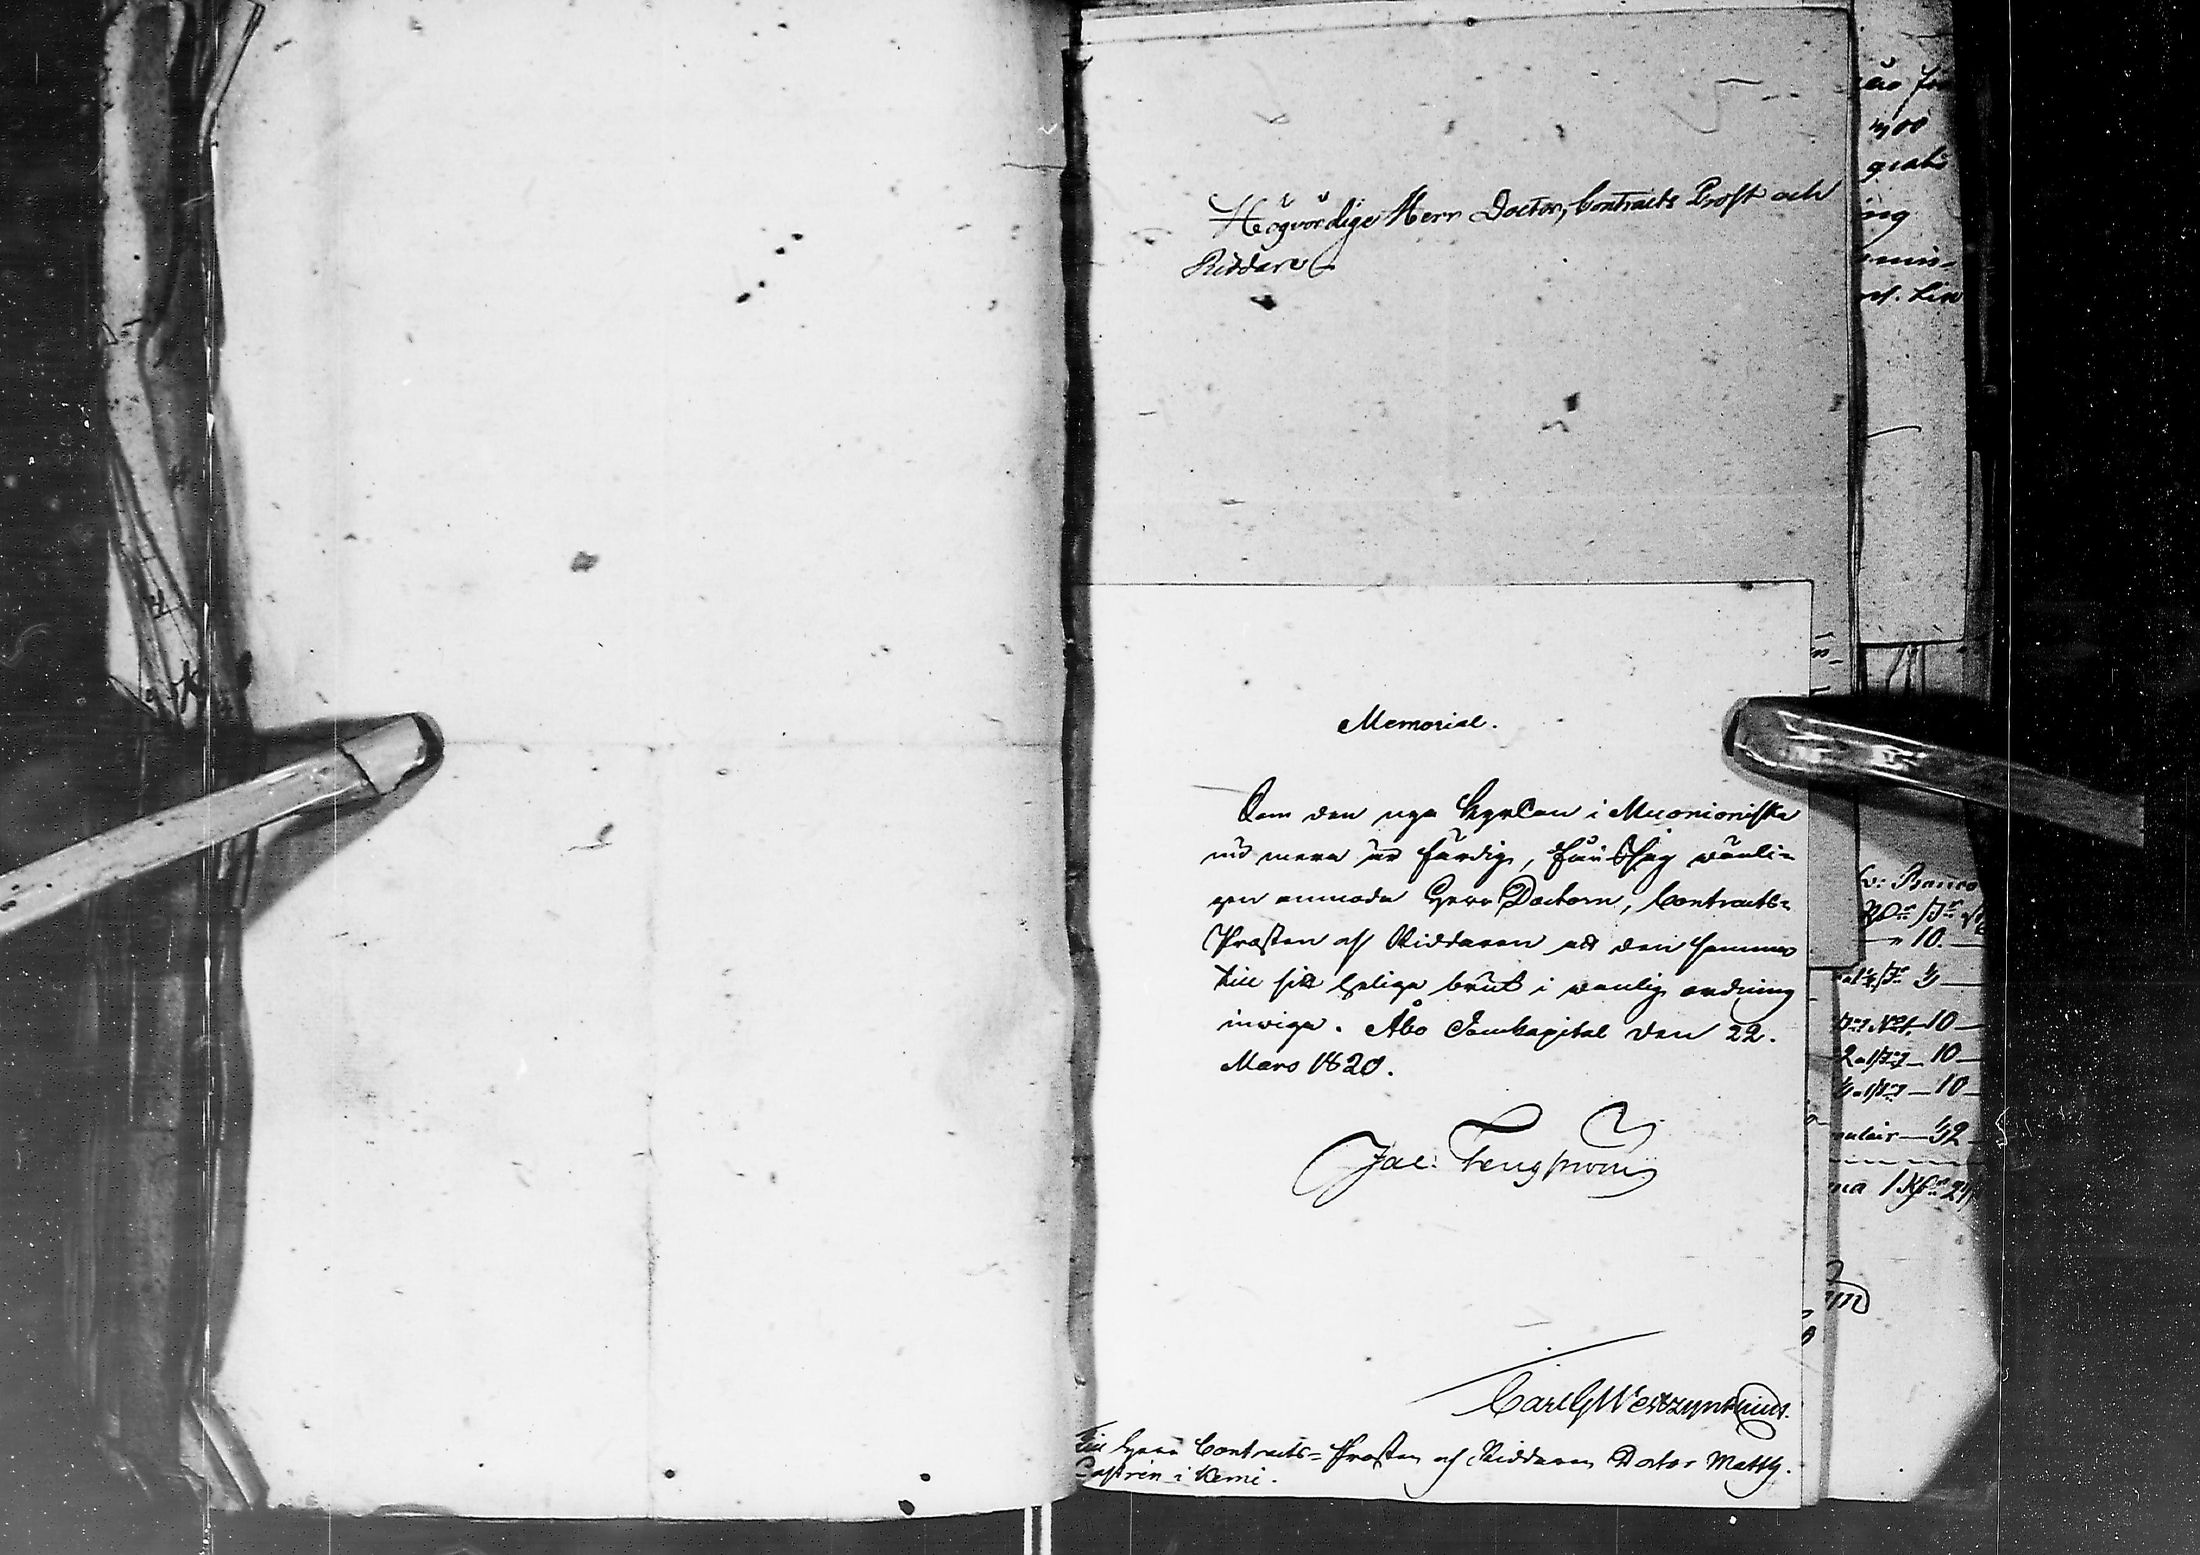 Högvördige Herr Doctor, Contracts Prost och
Riddare
Memorial.
Som den nya Kyrkan i Muonioniska
nu mera är färdig, får jag vänli-
gen anmoda Herr Doctorn, Contracts-
Prosten och Riddaren att den samma
till sitt heliga bruk i vanlig ordning
inviga. Åbo Domkapitel den 22.
Mars 1820.
Jac: Tengström
Carl G
Till Herr Contracts-Prosten och Riddaren Doctor Matth.
Castrén i Kemi.
grati
ing
Banco
10
10
10
10